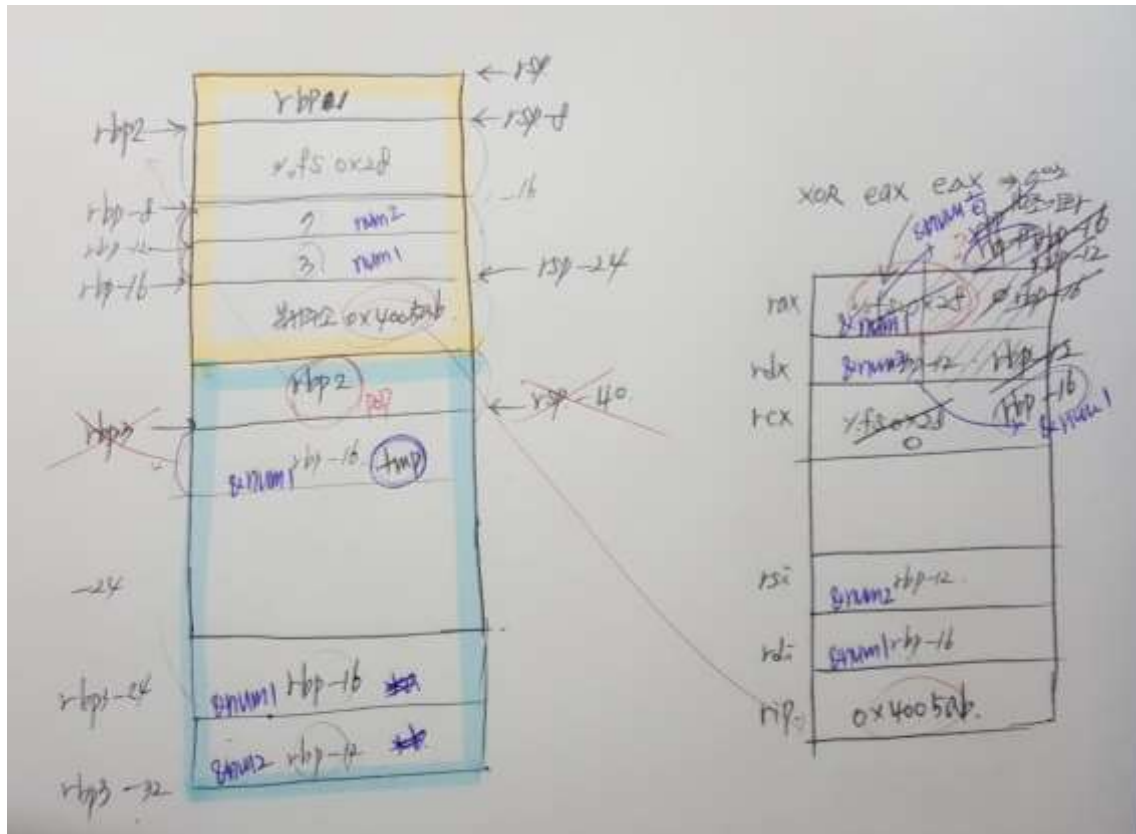 ← rsp
rbp 1
rbp2 →
← rsp-8
%.fs 0x28
rbp-8 →
-16
num2
rbp-12 →
3 num1
rbp-16 →
← rsp-24
0x4005ab.
rbp2
pop
rbp3 →
← rsp-40
&num1 rbp-16 tmp
-24
rbp3-24
&num1 rbp-16
&num2 rbp-12
rbp3-32
XOR eax eax →
&num
rbp-16
rbp-12
rax
%.fs 0x28
rbp-16
&num1
rdx
rbp-12
rbp-12
rcx
%.fs 0x28
rbp-16
&num1
0
rsi
&num2 rbp-12.
rdi
&num1 rbp-16
rip
0x4005ab.